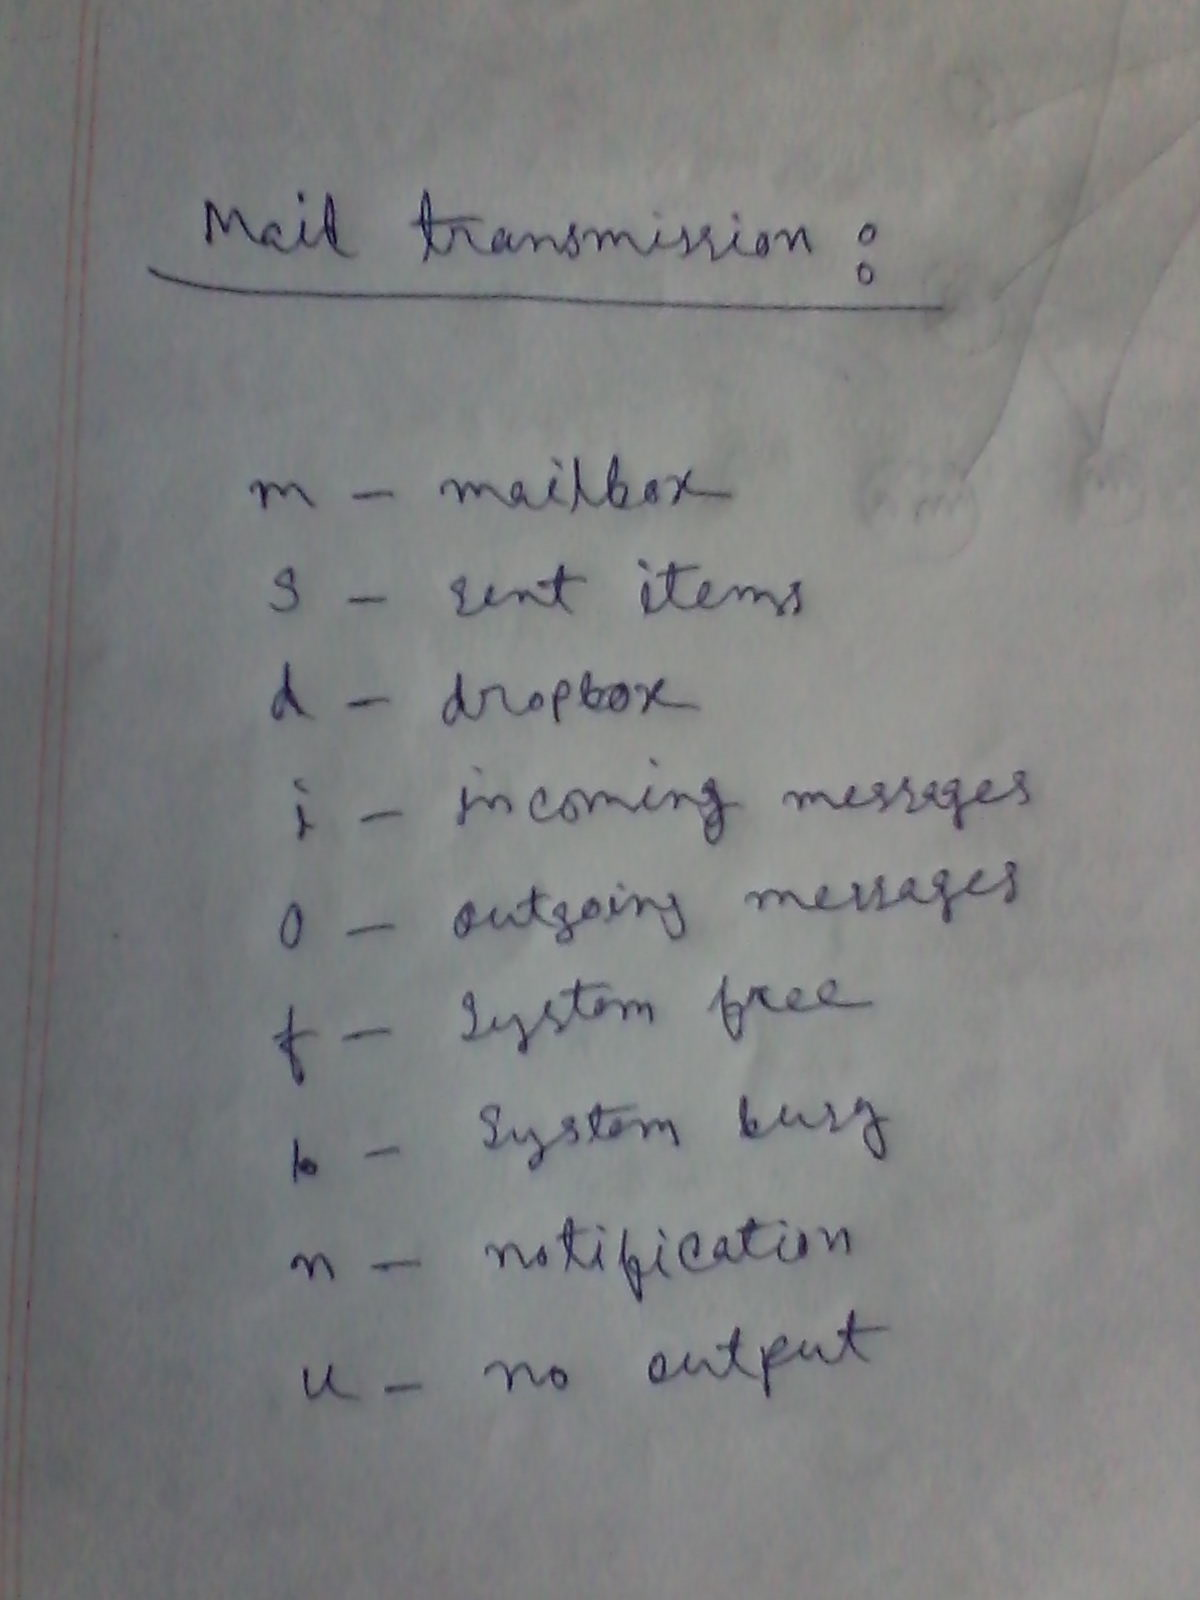 Mail transmission :
m - mailbox
s - sent items
d - dropbox
i - incoming messages
o - outgoing messages
f - System free
b - System busy
n - notification
u - no output